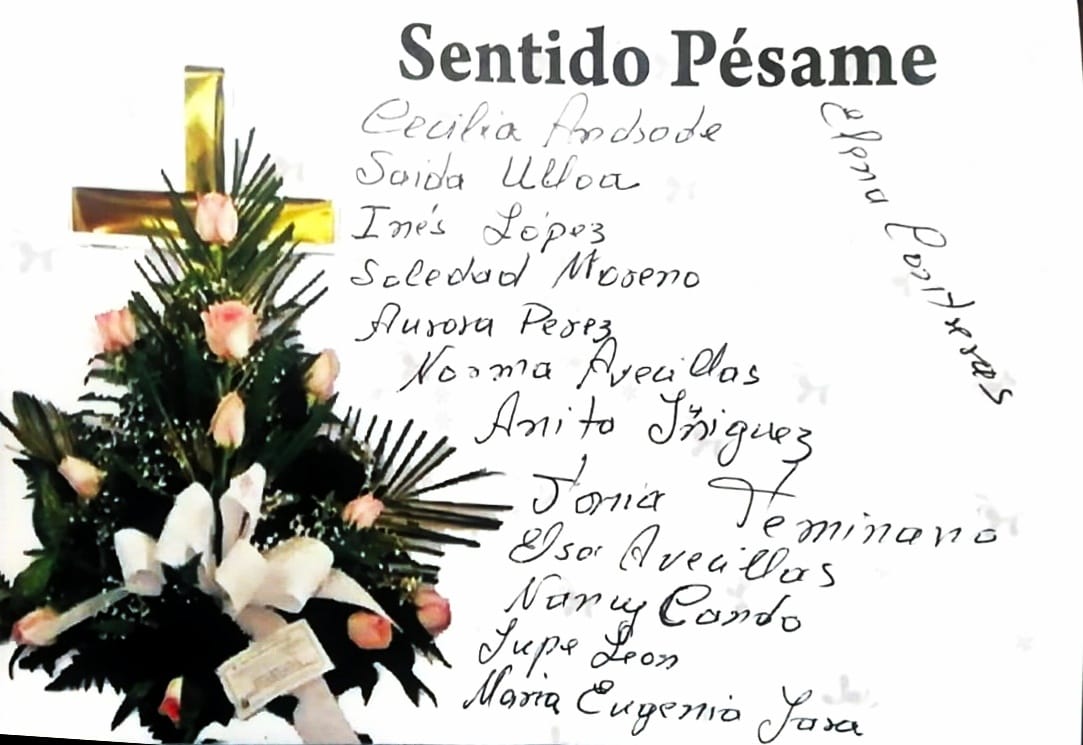 Sentido Pésame
Cecilia Andrade
Saida Ulloa
Inés López
Soledad Moreno
Aurora Perez
Norma Avecillas
Anita Iñiguez
Sonia
Elsa Avecillas
Nancy Cando
Lupe Leon
Maria Eugenia Jara
Elena